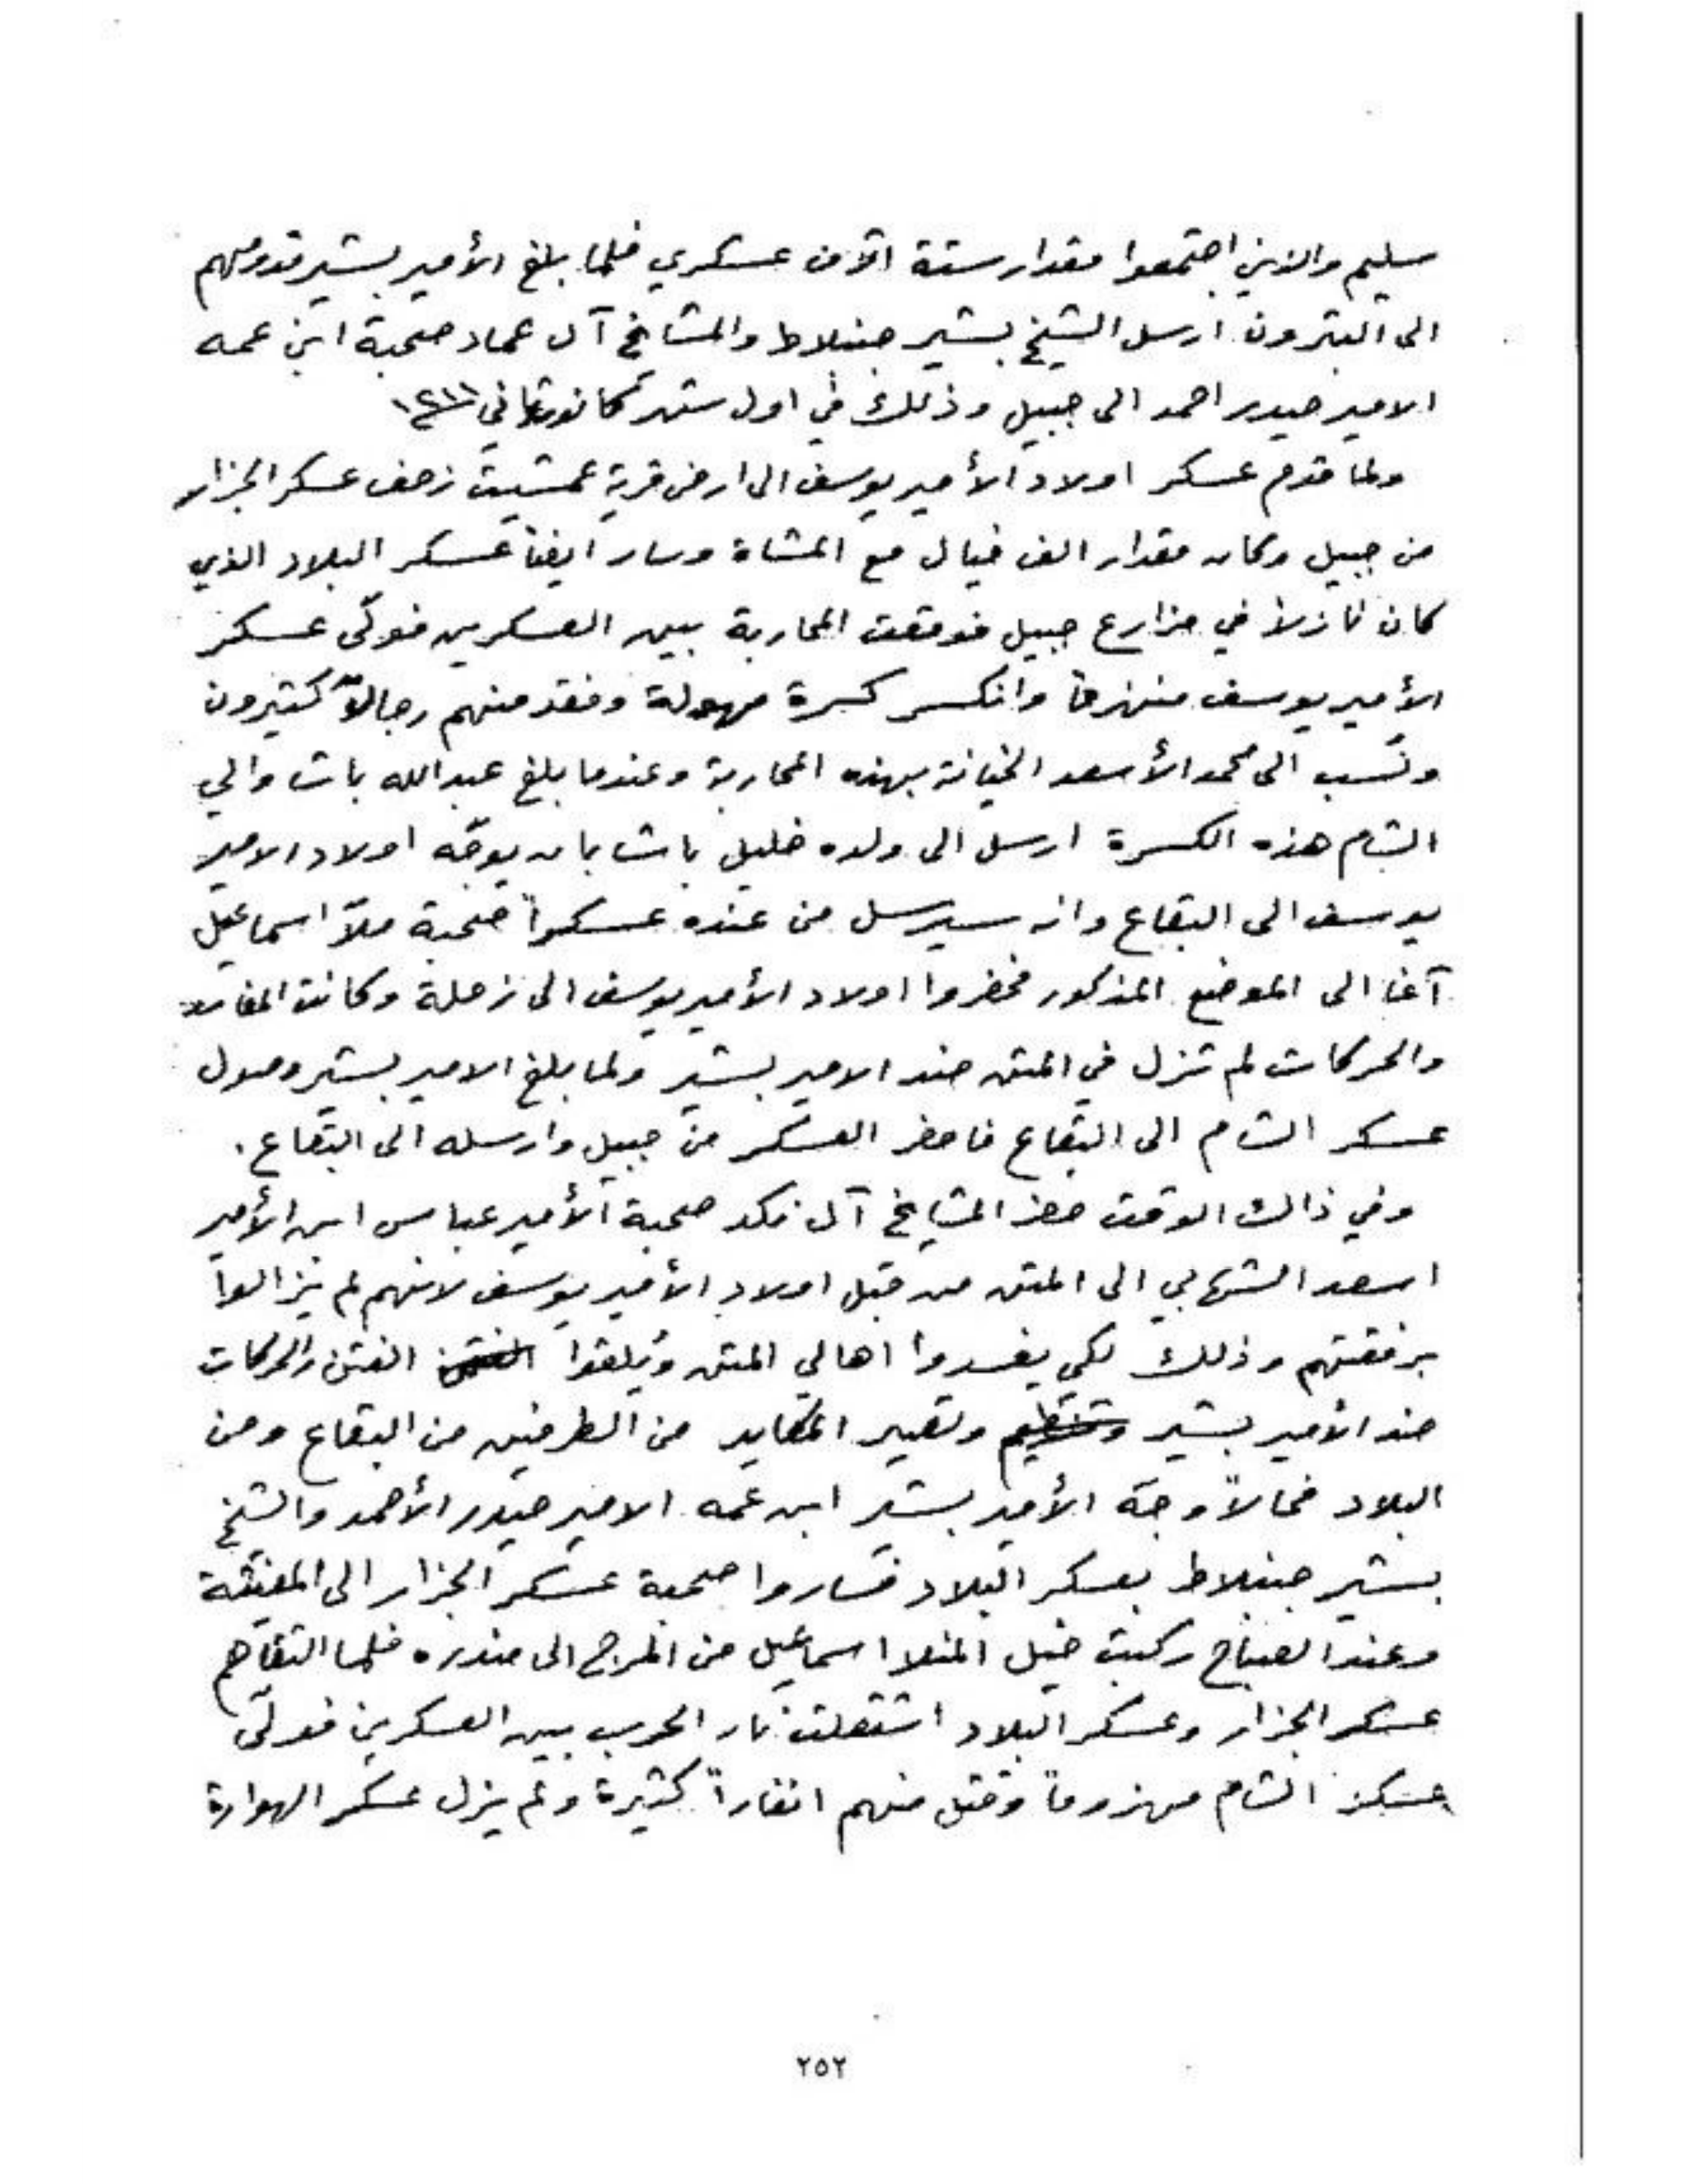 سليم والذين اجتمعوا مقدار ستة الآف عسكري فلما بلغ الأمير بشير قدومهم
الى البترون ارسل الشيخ بشير جنبلاط والمشايخ آل عماد صحبة ابن عمه
الامير حيدر احمد الى جبيل وذلك في اول شهر كانون ثاني ١٢١١
ولما قدم عسكر اولاد الأمير يوسف الى ارض قرية عمشيت زحف عسكر الجزار
من جبيل وكان مقدار الف خيال مع المشاة وسار ايضاً عسكر البلاد الذي
كان نازلاً في مزارع جبيل فوقعت المحاربة بين العسكرين فولّى عسكر
الأمير يوسف منهزماً وانكسر كسرة مهولة وفقد منهم رجالاً كثيرون
ونسب الى محمد الأسعد الخيانة بهذه المحاربة وعندما بلغ عبدالله باشا والي
الشام هذه الكسرة ارسل الى ولده خليل باشا بان يوجّه اولاد الامير
يوسف الى البقاع وانه سيرسل من عنده عسكراً صحبة ملاّ اسماعيل
آغا الى الموضع المذكور فحضروا اولاد الأمير يوسف الى زحلة وكانت المفاسد
والحركات لم تزل في المتن ضد الامير بشير ولما بلغ الامير بشير وصول
عسكر الشام الى البقاع فاحضر العسكر من جبيل وارسله الى البقاع .
وفي ذالك الوقت حضر المشايخ آل نكد صحبة الأمير عباس ابن الأمير
اسعد الشهابي الى المتن من قبل اولاد الأمير يوسف لانهم لم يزالوا
برفقتهم وذلك لكي يفسدوا اهالي المتن ويلقوا الفتن والحركات
ضد الأمير بشير وتنظيم وتصير المكايد من الطرفين من البقاع ومن
البلاد فحالاً وجّه الأمير بشير ابن عمه الامير حيدر الأحمد والشيخ
بشير جنبلاط بعسكر البلاد فساروا صحبة عسكر الجزار الى المغيثة
وعند الصباح ركبت خيل المنلا اسماعيل من المرج الى مندره فلما التقاهم
عسكر الجزار وعسكر البلاد اشتعلت نار الحرب بين العسكرين فولّى
عسكر الشام مهزوماً وقتل منهم انفاراً كثيرة ولم يزل عسكر الهوارة
٢٥٢